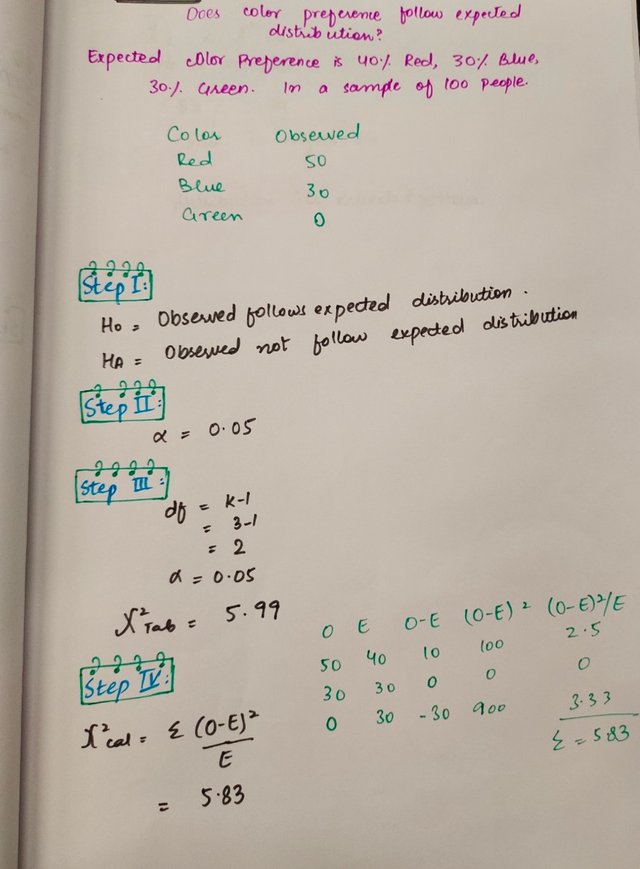 Does color preference follow expected
distribution?
Expected color Preference is 40% Red, 30% Blue,
30% Green. In a sample of 100 people.
Color Observed
Red 50
Blue 30
Green 0
Step I:
H0 = Observed follows expected distribution.
HA = Observed not follow expected distribution
Step II:
α = 0.05
Step III:
df = K-1
= 3-1
= 2
α = 0.05
X²Tab = 5.99
O E O-E (O-E)² (O-E)²/E
50 40 10 100 2.5
30 30 0 0 0
0 30 -30 900 3.33
Σ = 5.83
Step IV:
X²cal = Σ (O-E)²
E
= 5.83